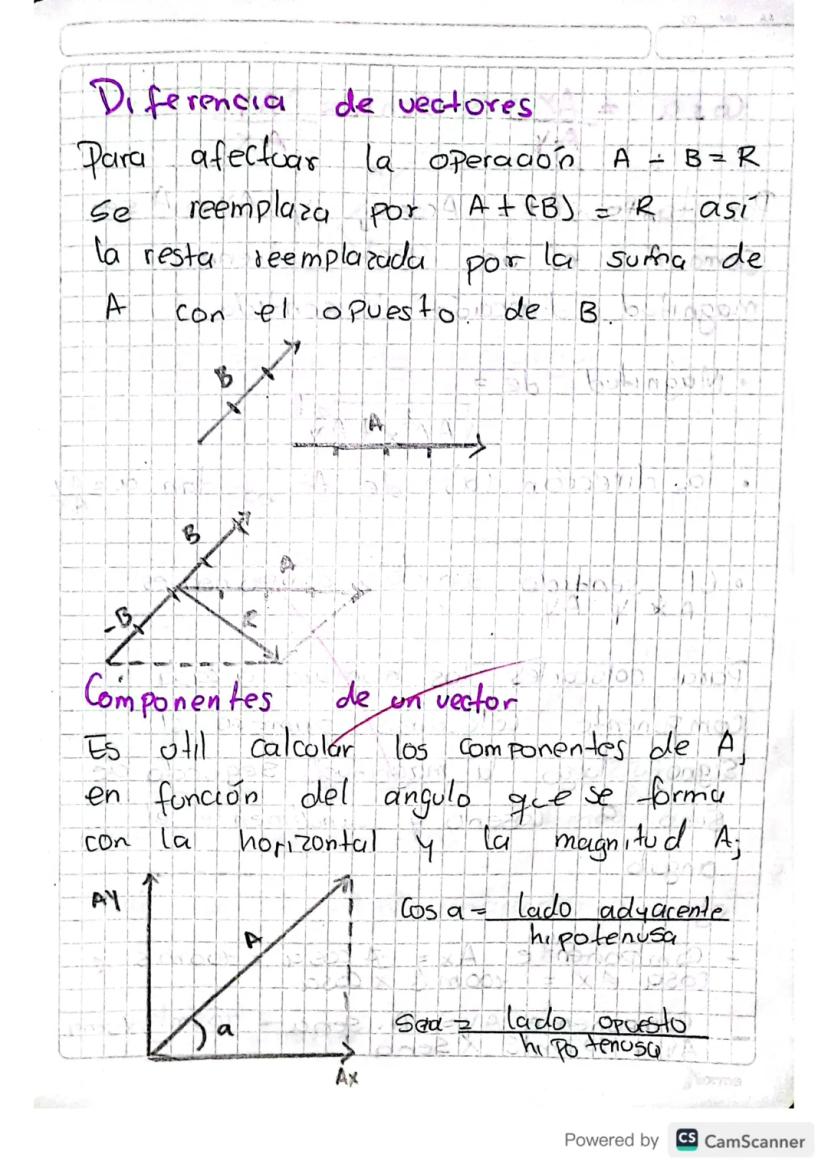 Diferencia de vectores
Para afectuar la operación A - B = R
se reemplaza por A + (-B) = R así
la resta reemplazada por la suma de
A con el opuesto de B.
B
A
B
A
-B
R
Componentes de un vector
Es útil calcular los componentes de A,
en función del ángulo que se forma
con la horizontal y la magnitud A;
AY
A
a
AX
Cos a = lado adyacente
hipotenusa
Sen a = lado opuesto
hipotenusa
Powered by CS CamScanner